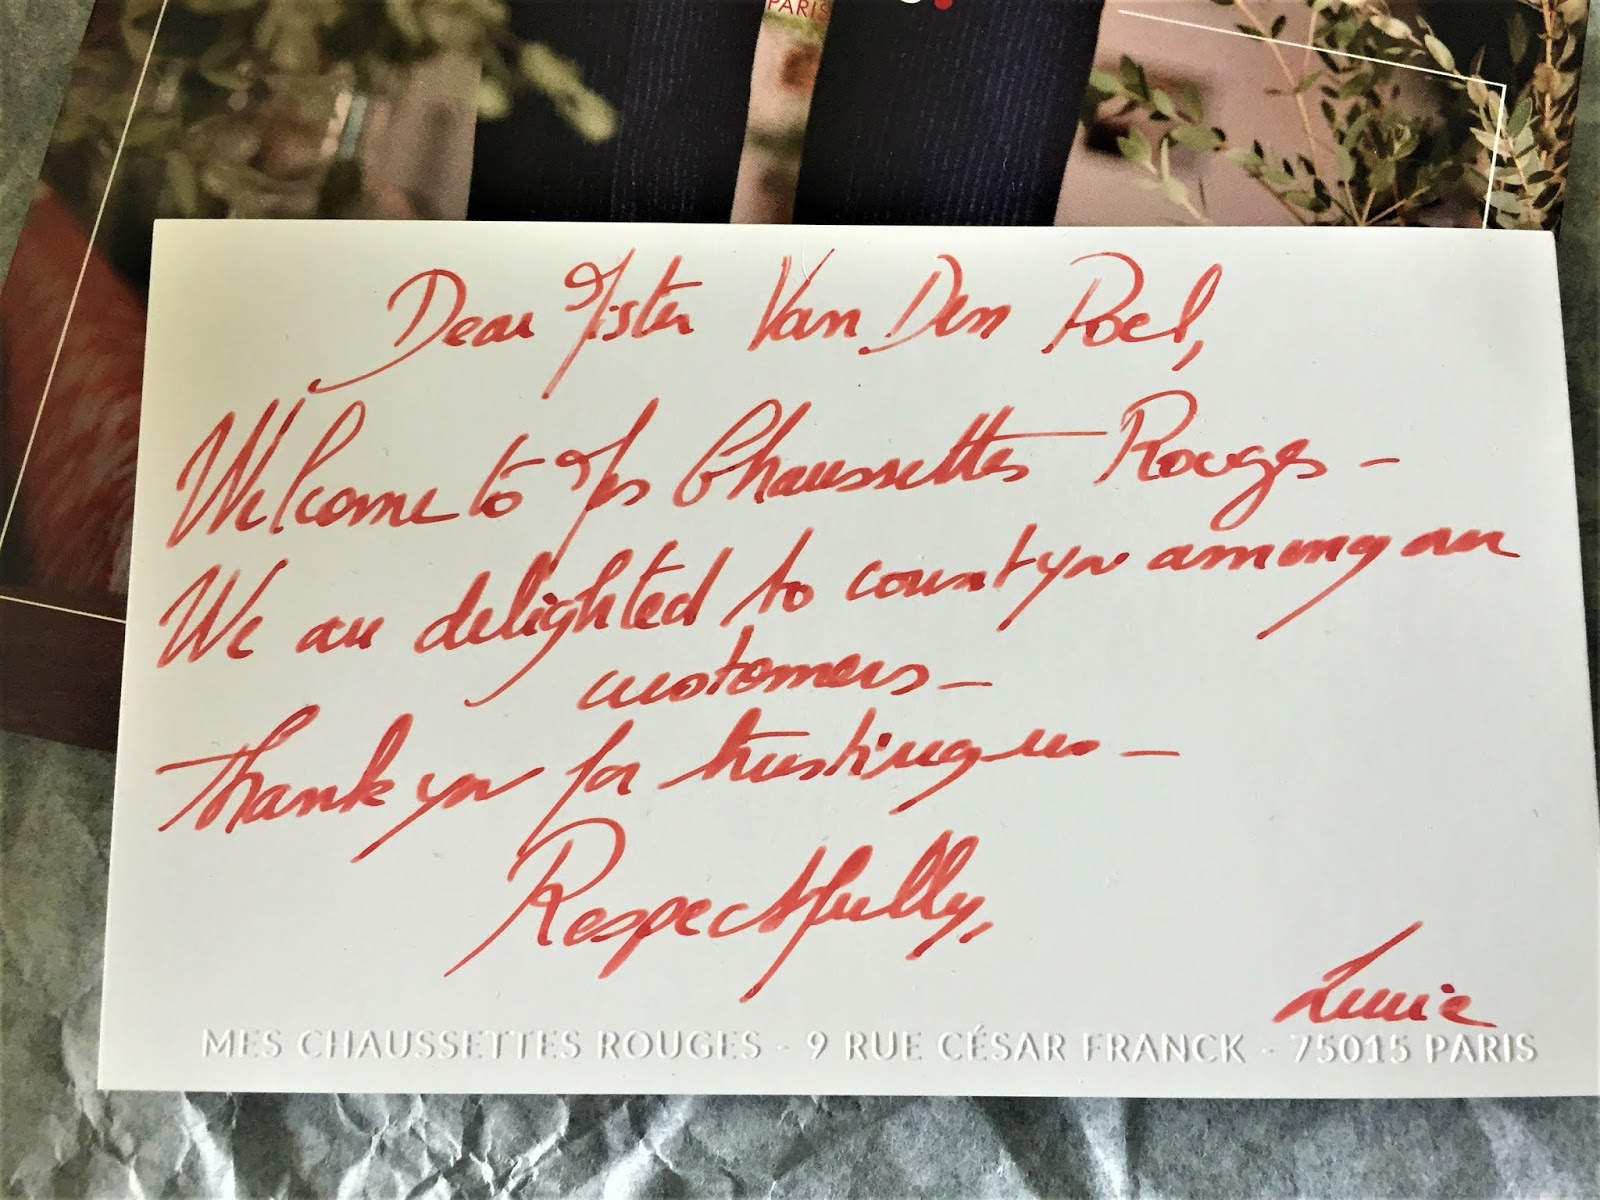 PARIS
Dear Mister Van Den Poel,
Welcome to Mes Chaussettes Rouges -
We are delighted to count you among our
customers -
Thank you for trusting us -
Respectfully,
Lucie
MES CHAUSSETTES ROUGES - 9 RUE CÉSAR FRANCK - 75015 PARIS